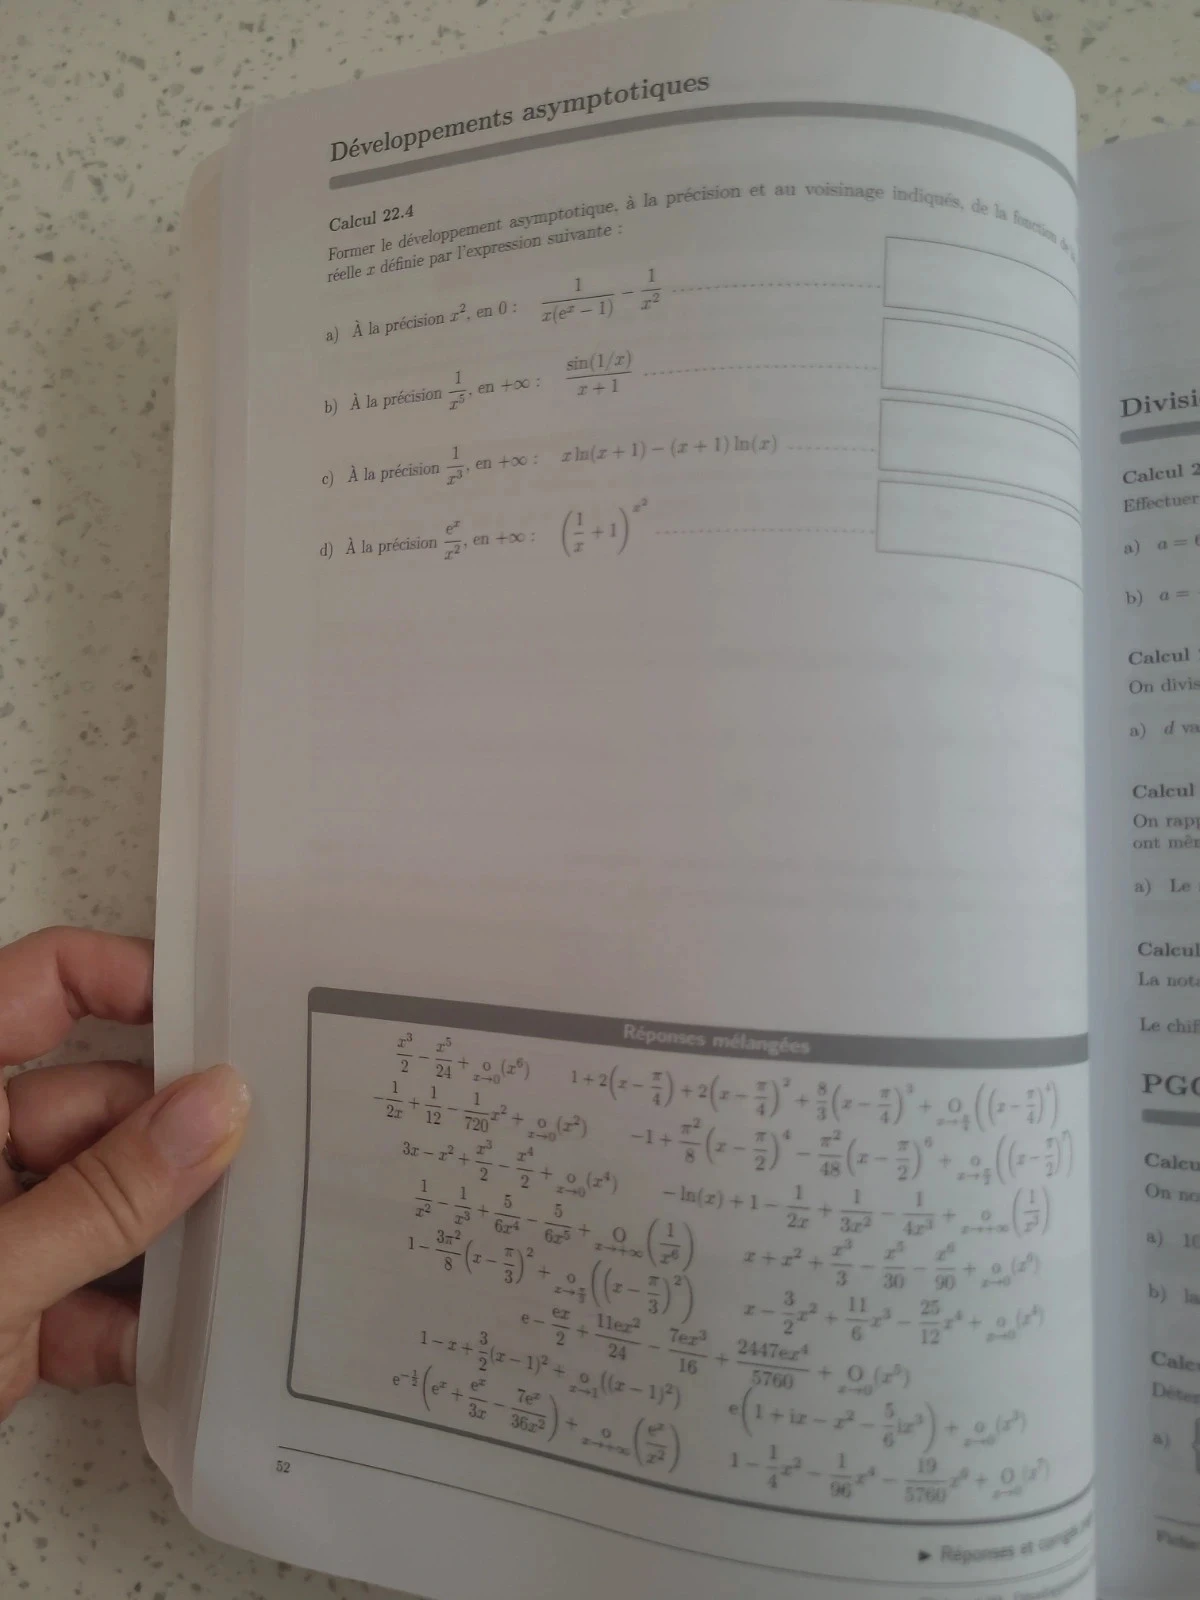 Développements asymptotiques
Calcul 22.4
Former le développement asymptotique, à la précision et au voisinage indiqués, de la fonction de la
réelle x définie par l'expression suivante :
a) À la précision x², en 0 : 1/(x(eˣ − 1)) − 1/x²
b) À la précision 1/x⁵, en +∞ : sin(1/x)/(x + 1)
c) À la précision 1/x³, en +∞ : x ln(x + 1) − (x + 1) ln(x)
d) À la précision eˣ/x², en +∞ : (1/x + 1)^(x²)
Réponses mélangées
x³/2 − x⁵/24 + o_{x→0}(x⁶)
1 + 2(x − π/4) + 2(x − π/4)² + 8/3(x − π/4)³ + O_{x→π/4}((x − π/4)⁴)
−1/(2x) + 1/12 − 1/720 x² + o_{x→0}(x²)
−1 + π²/8(x − π/2)⁴ − π²/48(x − π/2)⁶ + o_{x→π/2}((x − π/2)⁷)
3x − x² + x³/2 − x⁴/2 + o_{x→0}(x⁴)
− ln(x) + 1 − 1/(2x) + 1/(3x²) − 1/(4x³) + o_{x→+∞}(1/x³)
1/x² − 1/x³ + 5/(6x⁴) − 5/(6x⁵) + O_{x→+∞}(1/x⁶)
x + x² + x³/3 − x⁵/30 − x⁶/90 + o_{x→0}(x⁶)
1 − 3π²/8(x − π/3)² + o_{x→π/3}((x − π/3)²)
x − 3/2 x² + 11/6 x³ − 25/12 x⁴ + o_{x→0}(x⁴)
e − ex/2 + 11ex²/24 − 7ex³/16 + 2447ex⁴/5760 + O_{x→0}(x⁵)
1 − x + 3/2(x − 1)² + o_{x→1}((x − 1)²)
e(1 + ix − x² − 5/6 ix³) + o_{x→0}(x³)
e^(−1/2)(eˣ + eˣ/3x − 7eˣ/36x²) + o_{x→+∞}(eˣ/x²)
1 − 1/4 x² − 1/96 x⁴ − 19/5760 x⁶ + O_{x→0}(x⁷)
52
▶ Réponses et corrigés
Divisi
Calcul 2
Effectuer
a) a = 6
b) a =
Calcul
On divis
a) d va
Calcul
On rapp
ont mêm
a) Le
Calcul
La nota
Le chif
PGC
Calcu
On no
a) 10
b) la
Calc
Déter
a)
Fiche